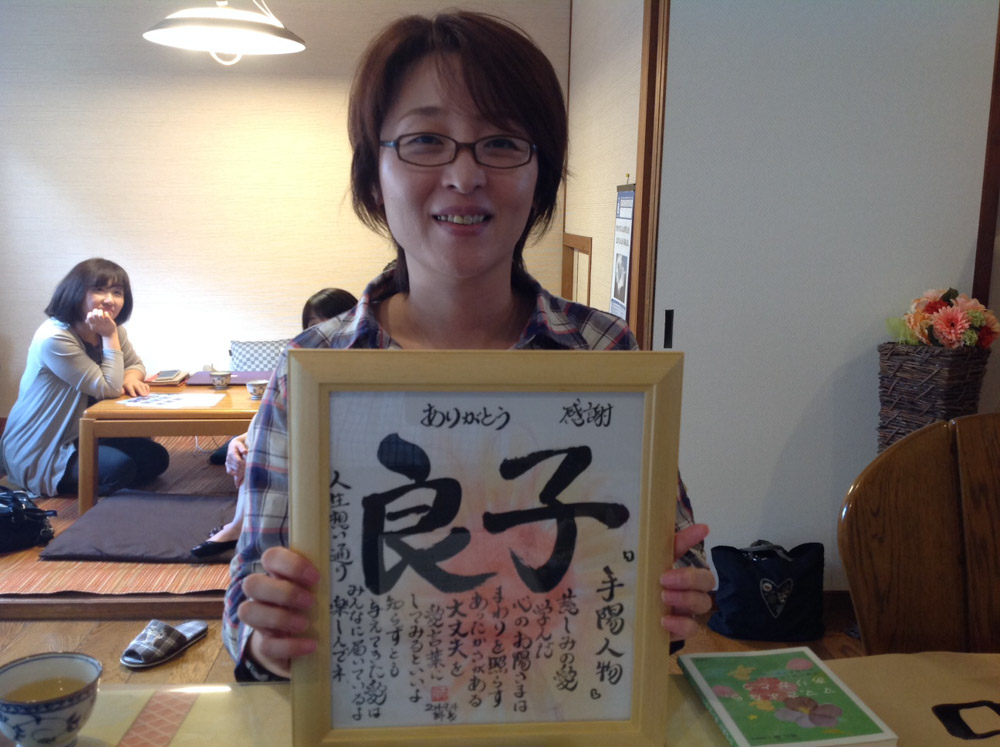 ありがとう 感謝
良子
『手陽人物』
慈しみの愛
学んだ
心のお陽さまは
まわりを照らす
あったかさがある
大丈夫を
愛言葉に
してみるといいよ
知らずとも
与えてきた愛は
みんなに届いているよ
楽しんで
人生想い通り